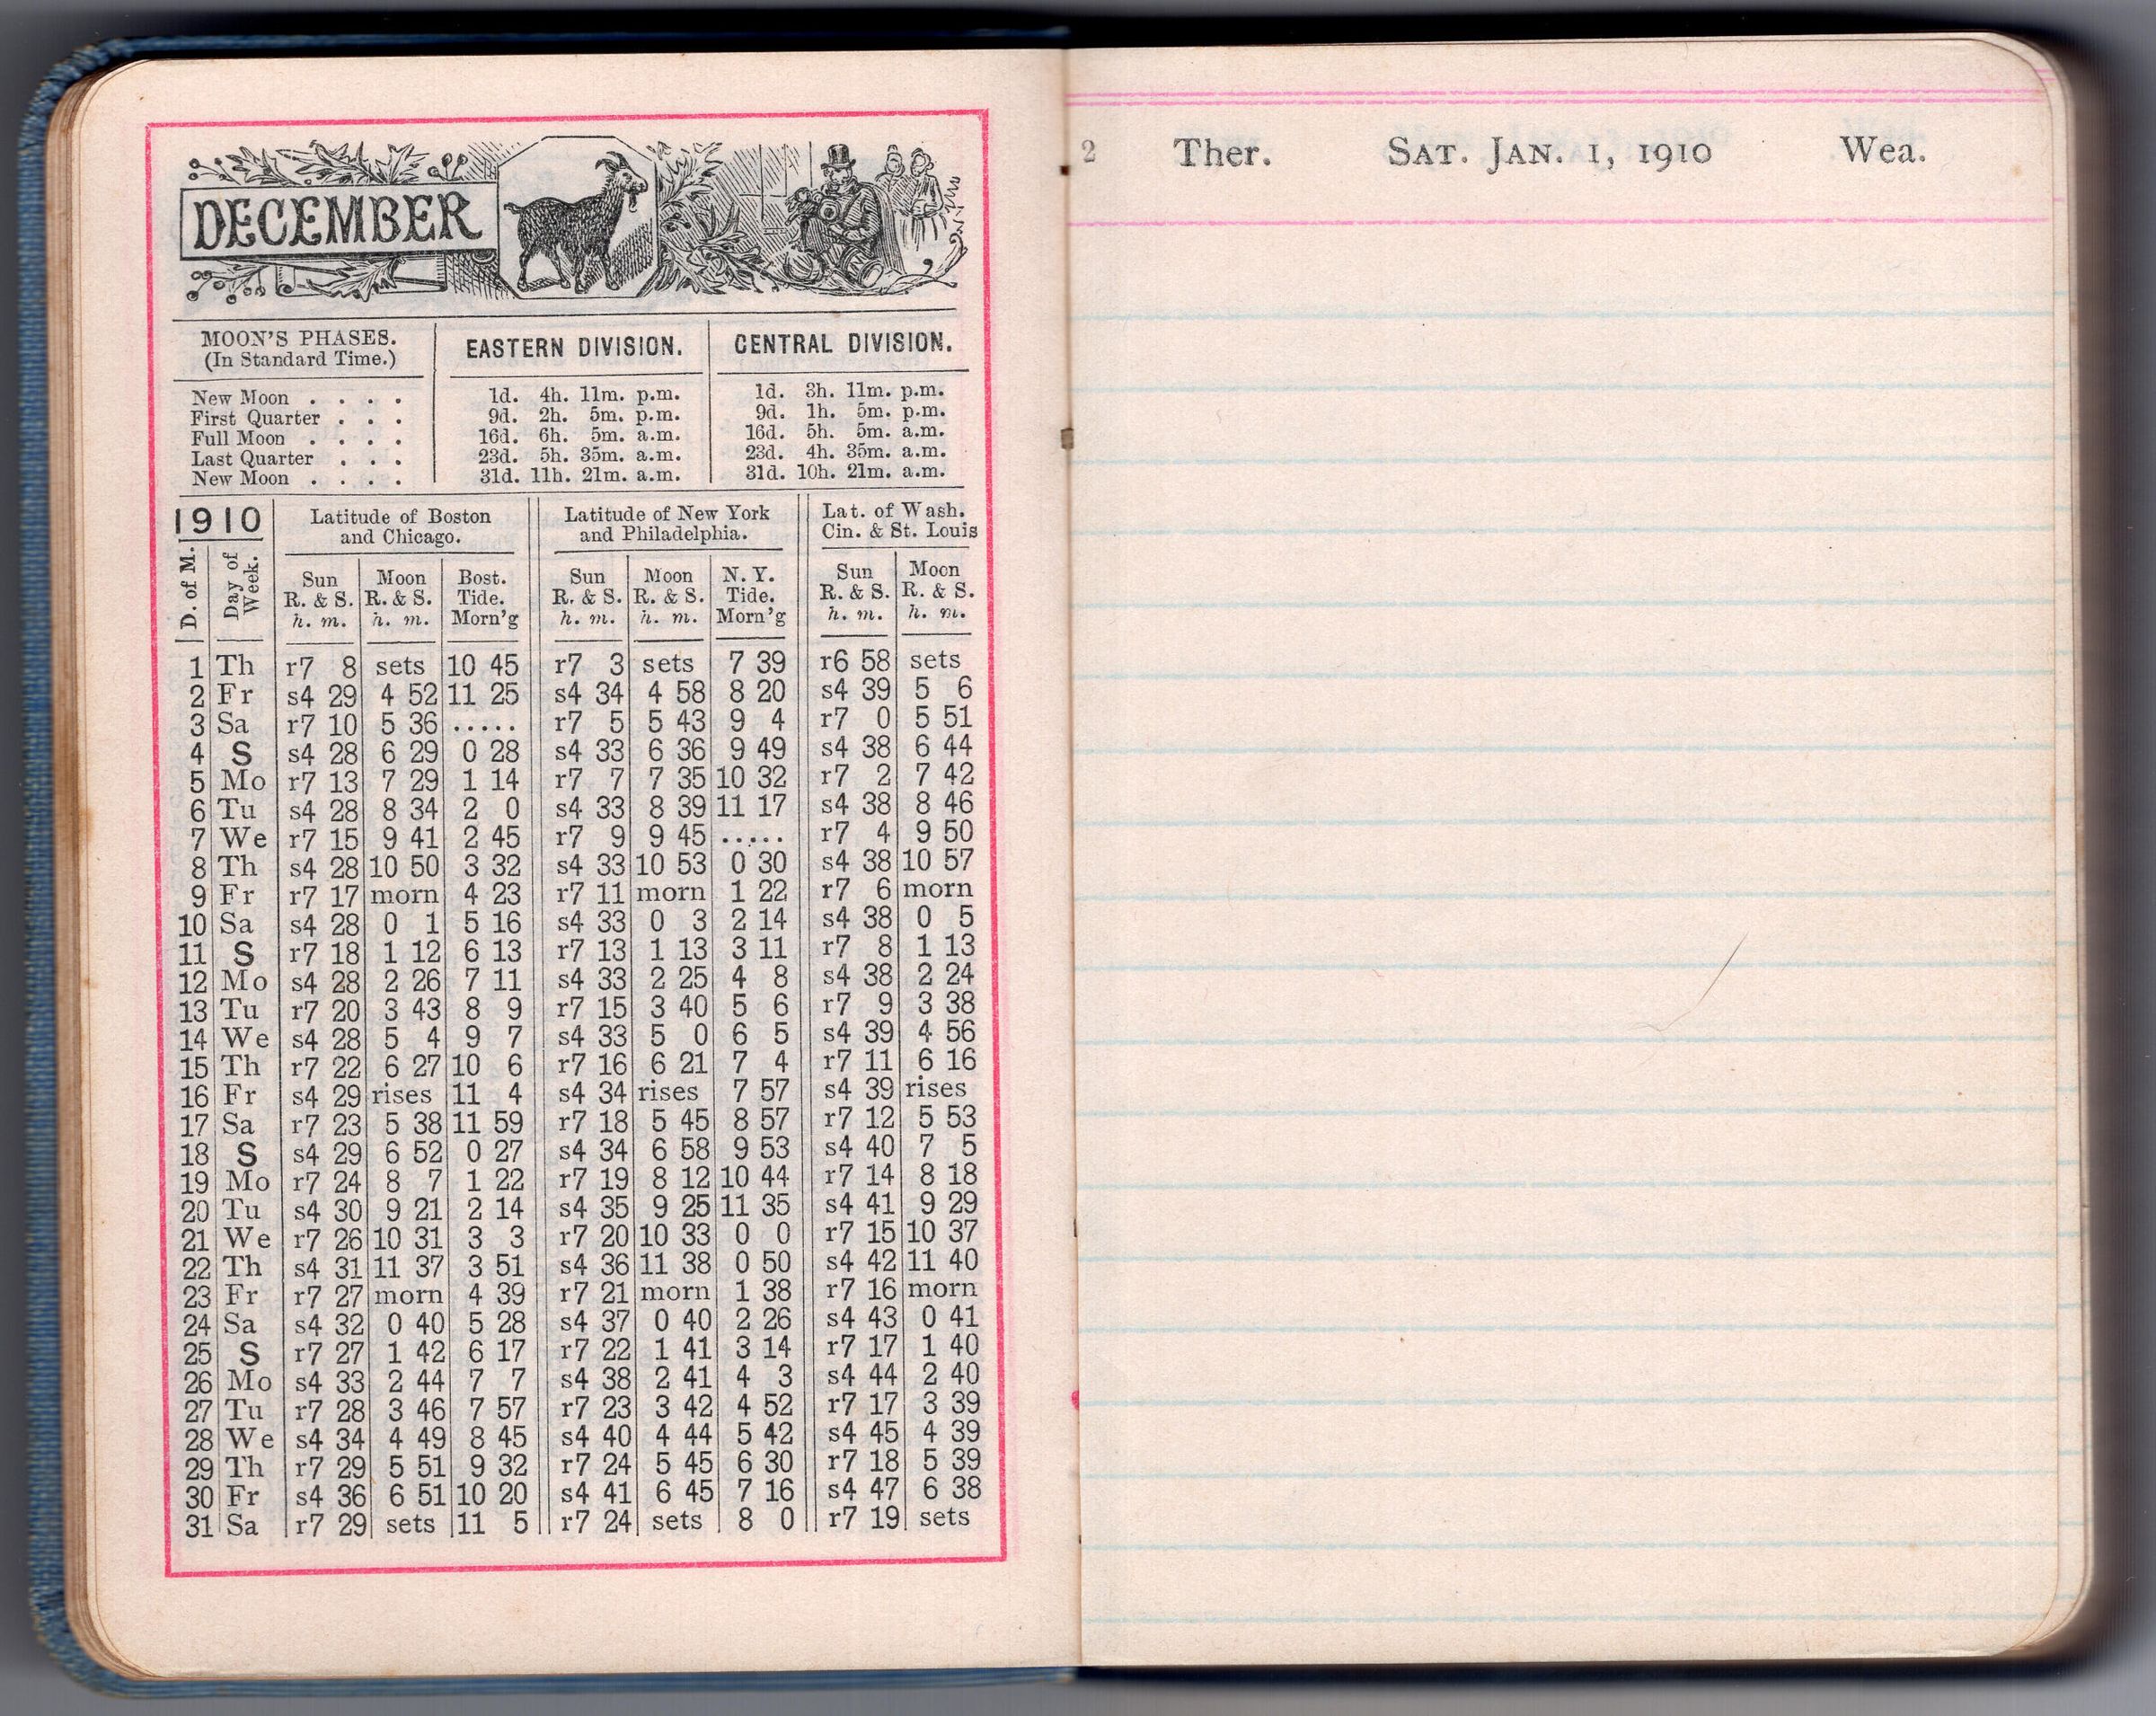 DECEMBER
MOON'S PHASES. EASTERN DIVISION. CENTRAL DIVISION.
(In Standard Time.)
New Moon . . . . 1d. 4h. 11m. p.m. 1d. 3h. 11m. p.m.
First Quarter . . . 9d. 2h. 5m. p.m. 9d. 1h. 5m. p.m.
Full Moon . . . . 16d. 6h. 5m. a.m. 16d. 5h. 5m. a.m.
Last Quarter . . . 23d. 5h. 35m. a.m. 23d. 4h. 35m. a.m.
New Moon . . . . 31d. 11h. 21m. a.m. 31d. 10h. 21m. a.m.
1910 Latitude of Boston Latitude of New York Lat. of Wash.
and Chicago. and Philadelphia. Cin. & St. Louis
D. of M. Day of Week. Sun Moon Bost. Sun Moon N. Y. Sun Moon
R. & S. R. & S. Tide. R. & S. R. & S. Tide. R. & S. R. & S.
h. m. h. m. Morn'g h. m. h. m. Morn'g h. m. h. m.
1 Th r7 8 sets 10 45 r7 3 sets 7 39 r6 58 sets
2 Fr s4 29 4 52 11 25 s4 34 4 58 8 20 s4 39 5 6
3 Sa r7 10 5 36 ..... r7 5 5 43 9 4 r7 0 5 51
4 S s4 28 6 29 0 28 s4 33 6 36 9 49 s4 38 6 44
5 Mo r7 13 7 29 1 14 r7 7 7 35 10 32 r7 2 7 42
6 Tu s4 28 8 34 2 0 s4 33 8 39 11 17 s4 38 8 46
7 We r7 15 9 41 2 45 r7 9 9 45 ..... r7 4 9 50
8 Th s4 28 10 50 3 32 s4 33 10 53 0 30 s4 38 10 57
9 Fr r7 17 morn 4 23 r7 11 morn 1 22 r7 6 morn
10 Sa s4 28 0 1 5 16 s4 33 0 3 2 14 s4 38 0 5
11 S r7 18 1 12 6 13 r7 13 1 13 3 11 r7 8 1 13
12 Mo s4 28 2 26 7 11 s4 33 2 25 4 8 s4 38 2 24
13 Tu r7 20 3 43 8 9 r7 15 3 40 5 6 r7 9 3 38
14 We s4 28 5 4 9 7 s4 33 5 0 6 5 s4 39 4 56
15 Th r7 22 6 27 10 6 r7 16 6 21 7 4 r7 11 6 16
16 Fr s4 29 rises 11 4 s4 34 rises 7 57 s4 39 rises
17 Sa r7 23 5 38 11 59 r7 18 5 45 8 57 r7 12 5 53
18 S s4 29 6 52 0 27 s4 34 6 58 9 53 s4 40 7 5
19 Mo r7 24 8 7 1 22 r7 19 8 12 10 44 r7 14 8 18
20 Tu s4 30 9 21 2 14 s4 35 9 25 11 35 s4 41 9 29
21 We r7 26 10 31 3 3 r7 20 10 33 0 0 r7 15 10 37
22 Th s4 31 11 37 3 51 s4 36 11 38 0 50 s4 42 11 40
23 Fr r7 27 morn 4 39 r7 21 morn 1 38 r7 16 morn
24 Sa s4 32 0 40 5 28 s4 37 0 40 2 26 s4 43 0 41
25 S r7 27 1 42 6 17 r7 22 1 41 3 14 r7 17 1 40
26 Mo s4 33 2 44 7 7 s4 38 2 41 4 3 s4 44 2 40
27 Tu r7 28 3 46 7 57 r7 23 3 42 4 52 r7 17 3 39
28 We s4 34 4 49 8 45 s4 40 4 44 5 42 s4 45 4 39
29 Th r7 29 5 51 9 32 r7 24 5 45 6 30 r7 18 5 39
30 Fr s4 36 6 51 10 20 s4 41 6 45 7 16 s4 47 6 38
31 Sa r7 29 sets 11 5 r7 24 sets 8 0 r7 19 sets
2 Ther. SAT. JAN. 1, 1910 Wea.